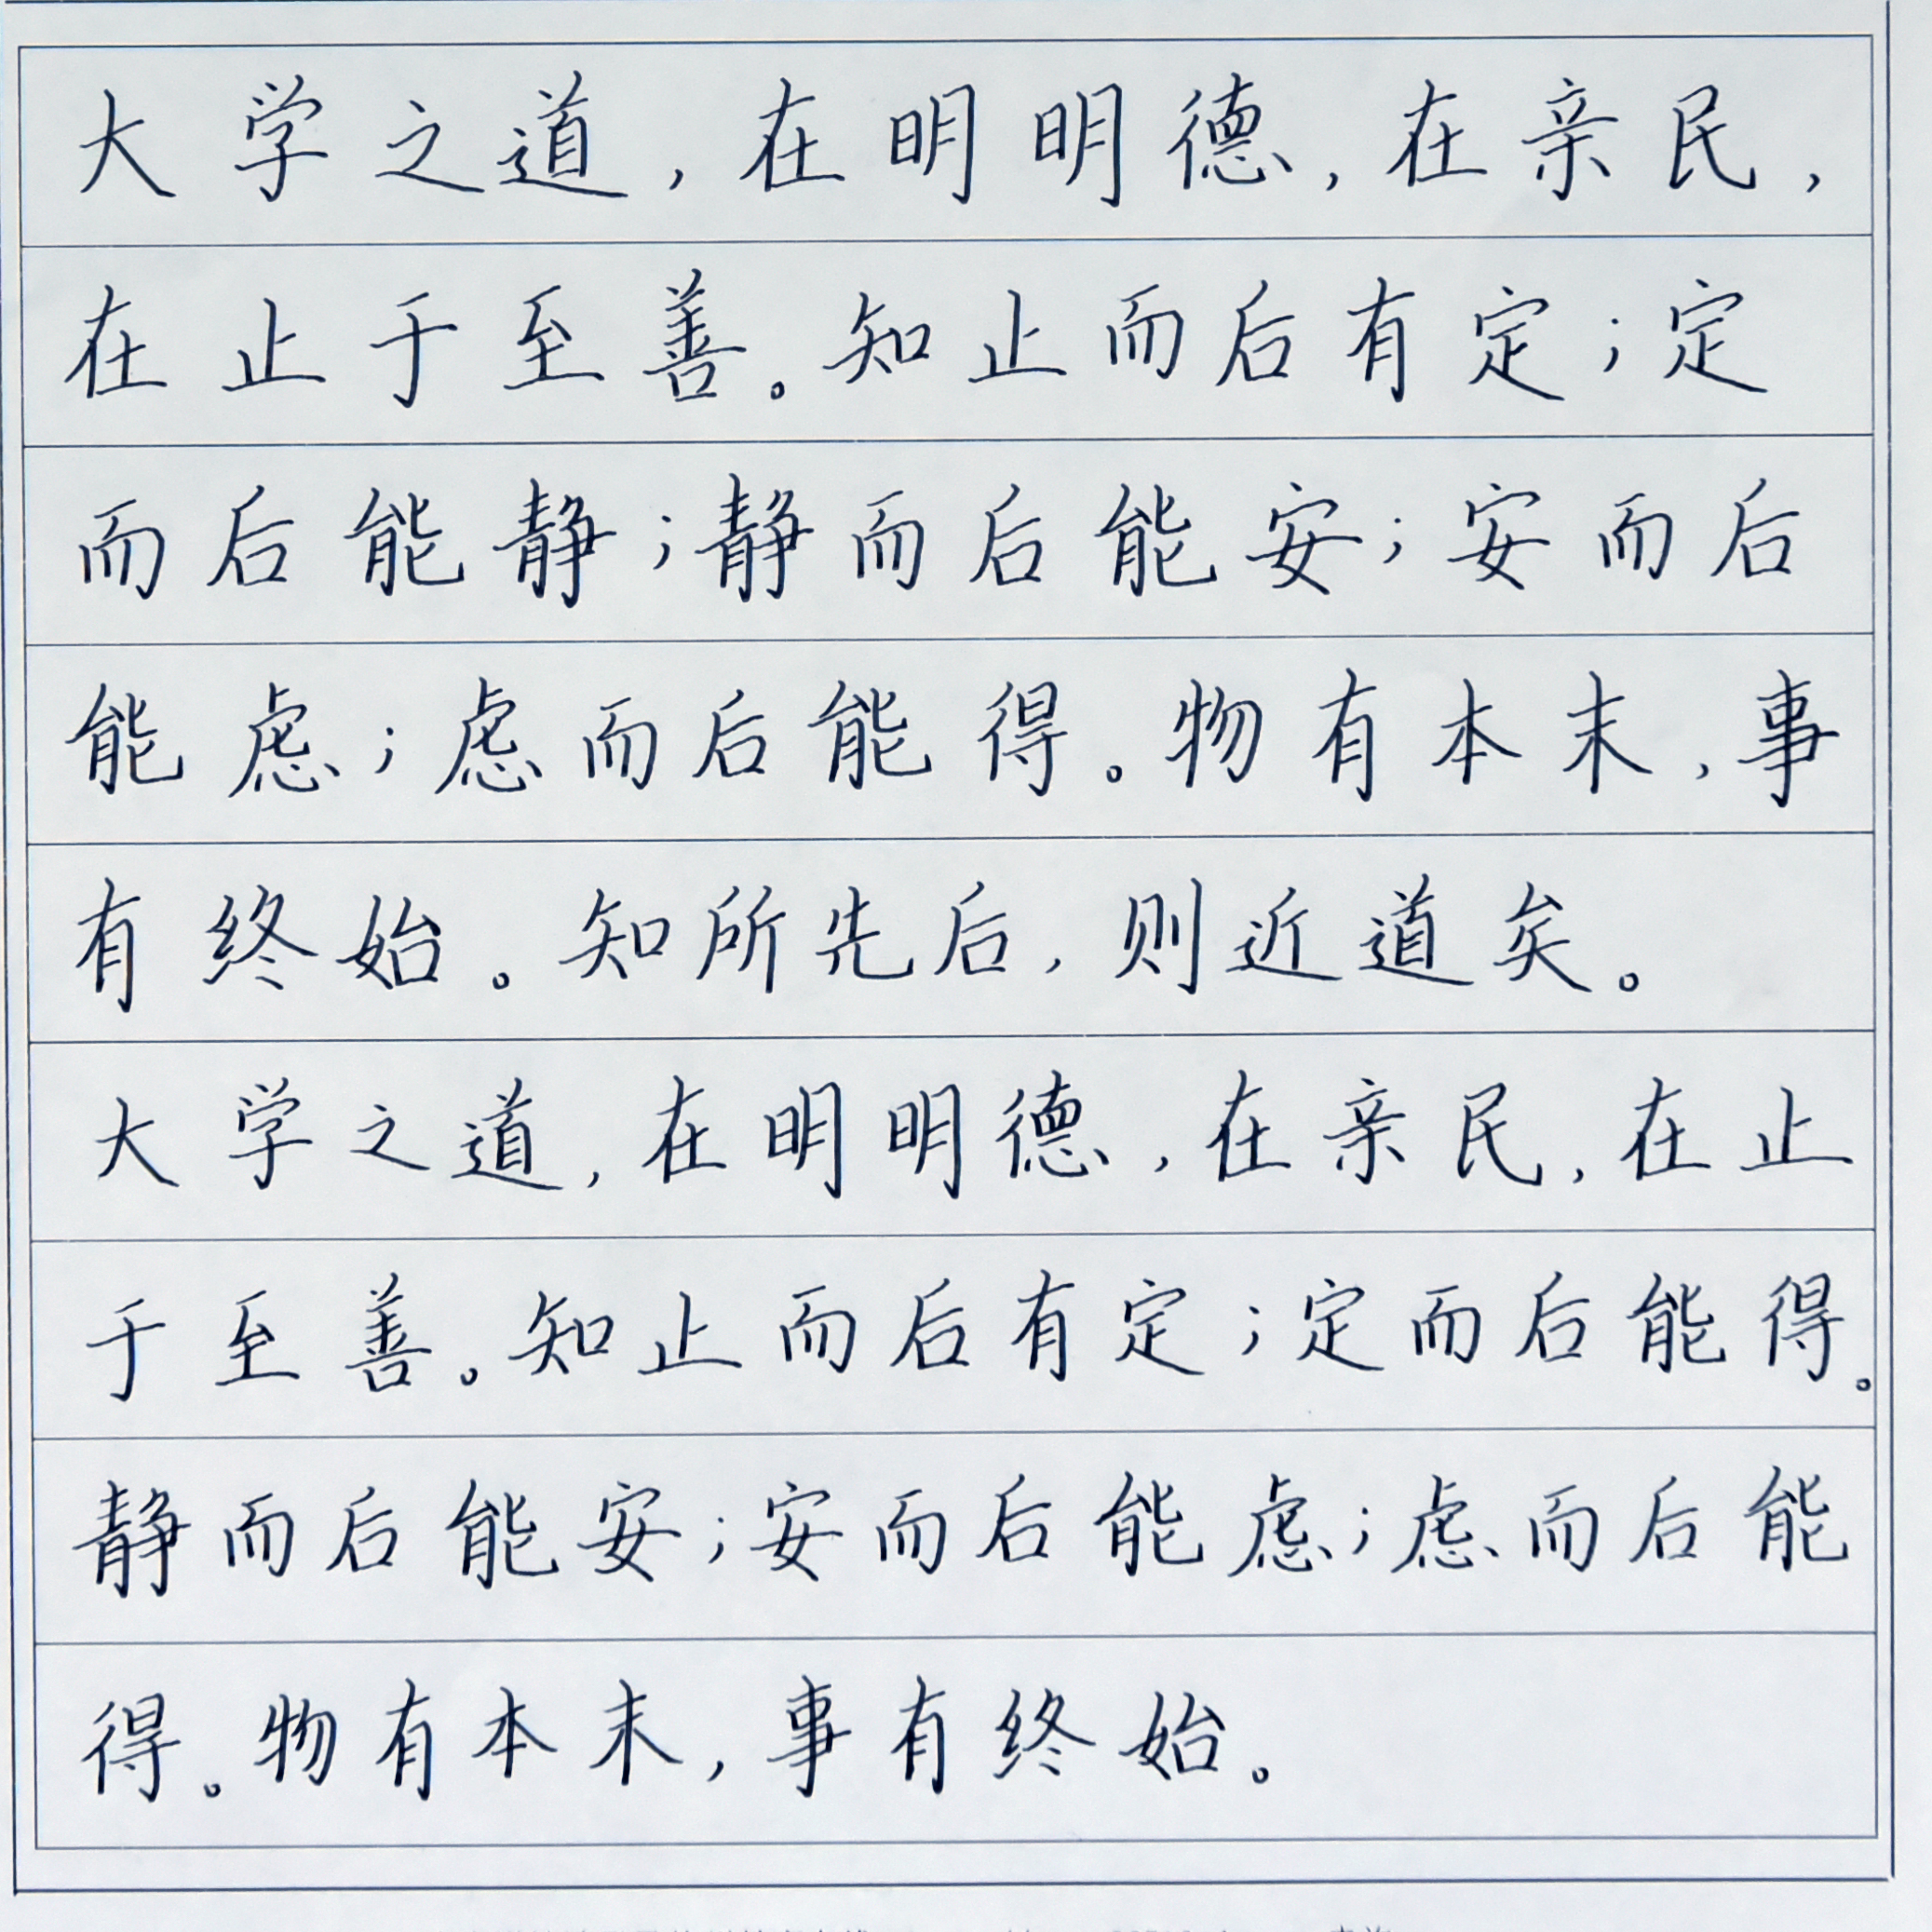 大学之道,在明明德,在亲民,
在止于至善。知止而后有定;定
而后能静;静而后能安;安而后
能虑;虑而后能得。物有本末,事
有终始。知所先后,则近道矣。
大学之道,在明明德,在亲民,在止
于至善。知止而后有定;定而后能得。
静而后能安;安而后能虑;虑而后能
得。物有本末,事有终始。